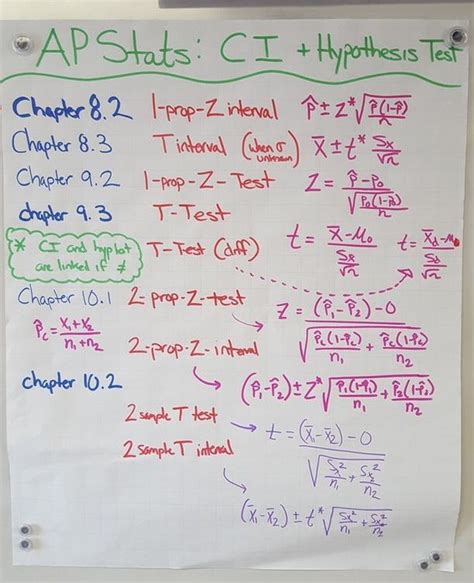 AP Stats: CI + Hypothesis Test
Chapter 8.2 1-prop-Z interval p̂ ± Z* √(p̂(1-p̂)/n)
Chapter 8.3 T interval (when σ unknown) x̄ ± t* Sx/√n
Chapter 9.2 1-prop-Z-Test Z = (p̂ - p₀)/√(p₀(1-p̂)/n)
chapter 9.3 T-Test t = (x̄ - μ₀)/(Sx/√n)
* CI and hyp test are linked if ≠
T-Test (diff) t = (x̄d - μ₀)/(Sd/√n)
Chapter 10.1 2-prop-Z-test Z = ((p̂₁ - p̂₂) - 0)/√(p̂c(1-p̂c)/n₁ + p̂c(1-p̂c)/n₂)
p̂c = (x₁ + x₂)/(n₁ + n₂)
2-prop-Z-interval (p̂₁ - p̂₂) ± Z* √(p̂₁(1-p̂₁)/n₁ + p̂₂(1-p̂₂)/n₂)
chapter 10.2
2 sample T test t = ((x̄₁ - x̄₂) - 0)/√(Sx₁²/n₁ + Sx₂²/n₂)
2 sample T interval
(x̄₁ - x̄₂) ± t* √(Sx₁²/n₁ + Sx₂²/n₂)